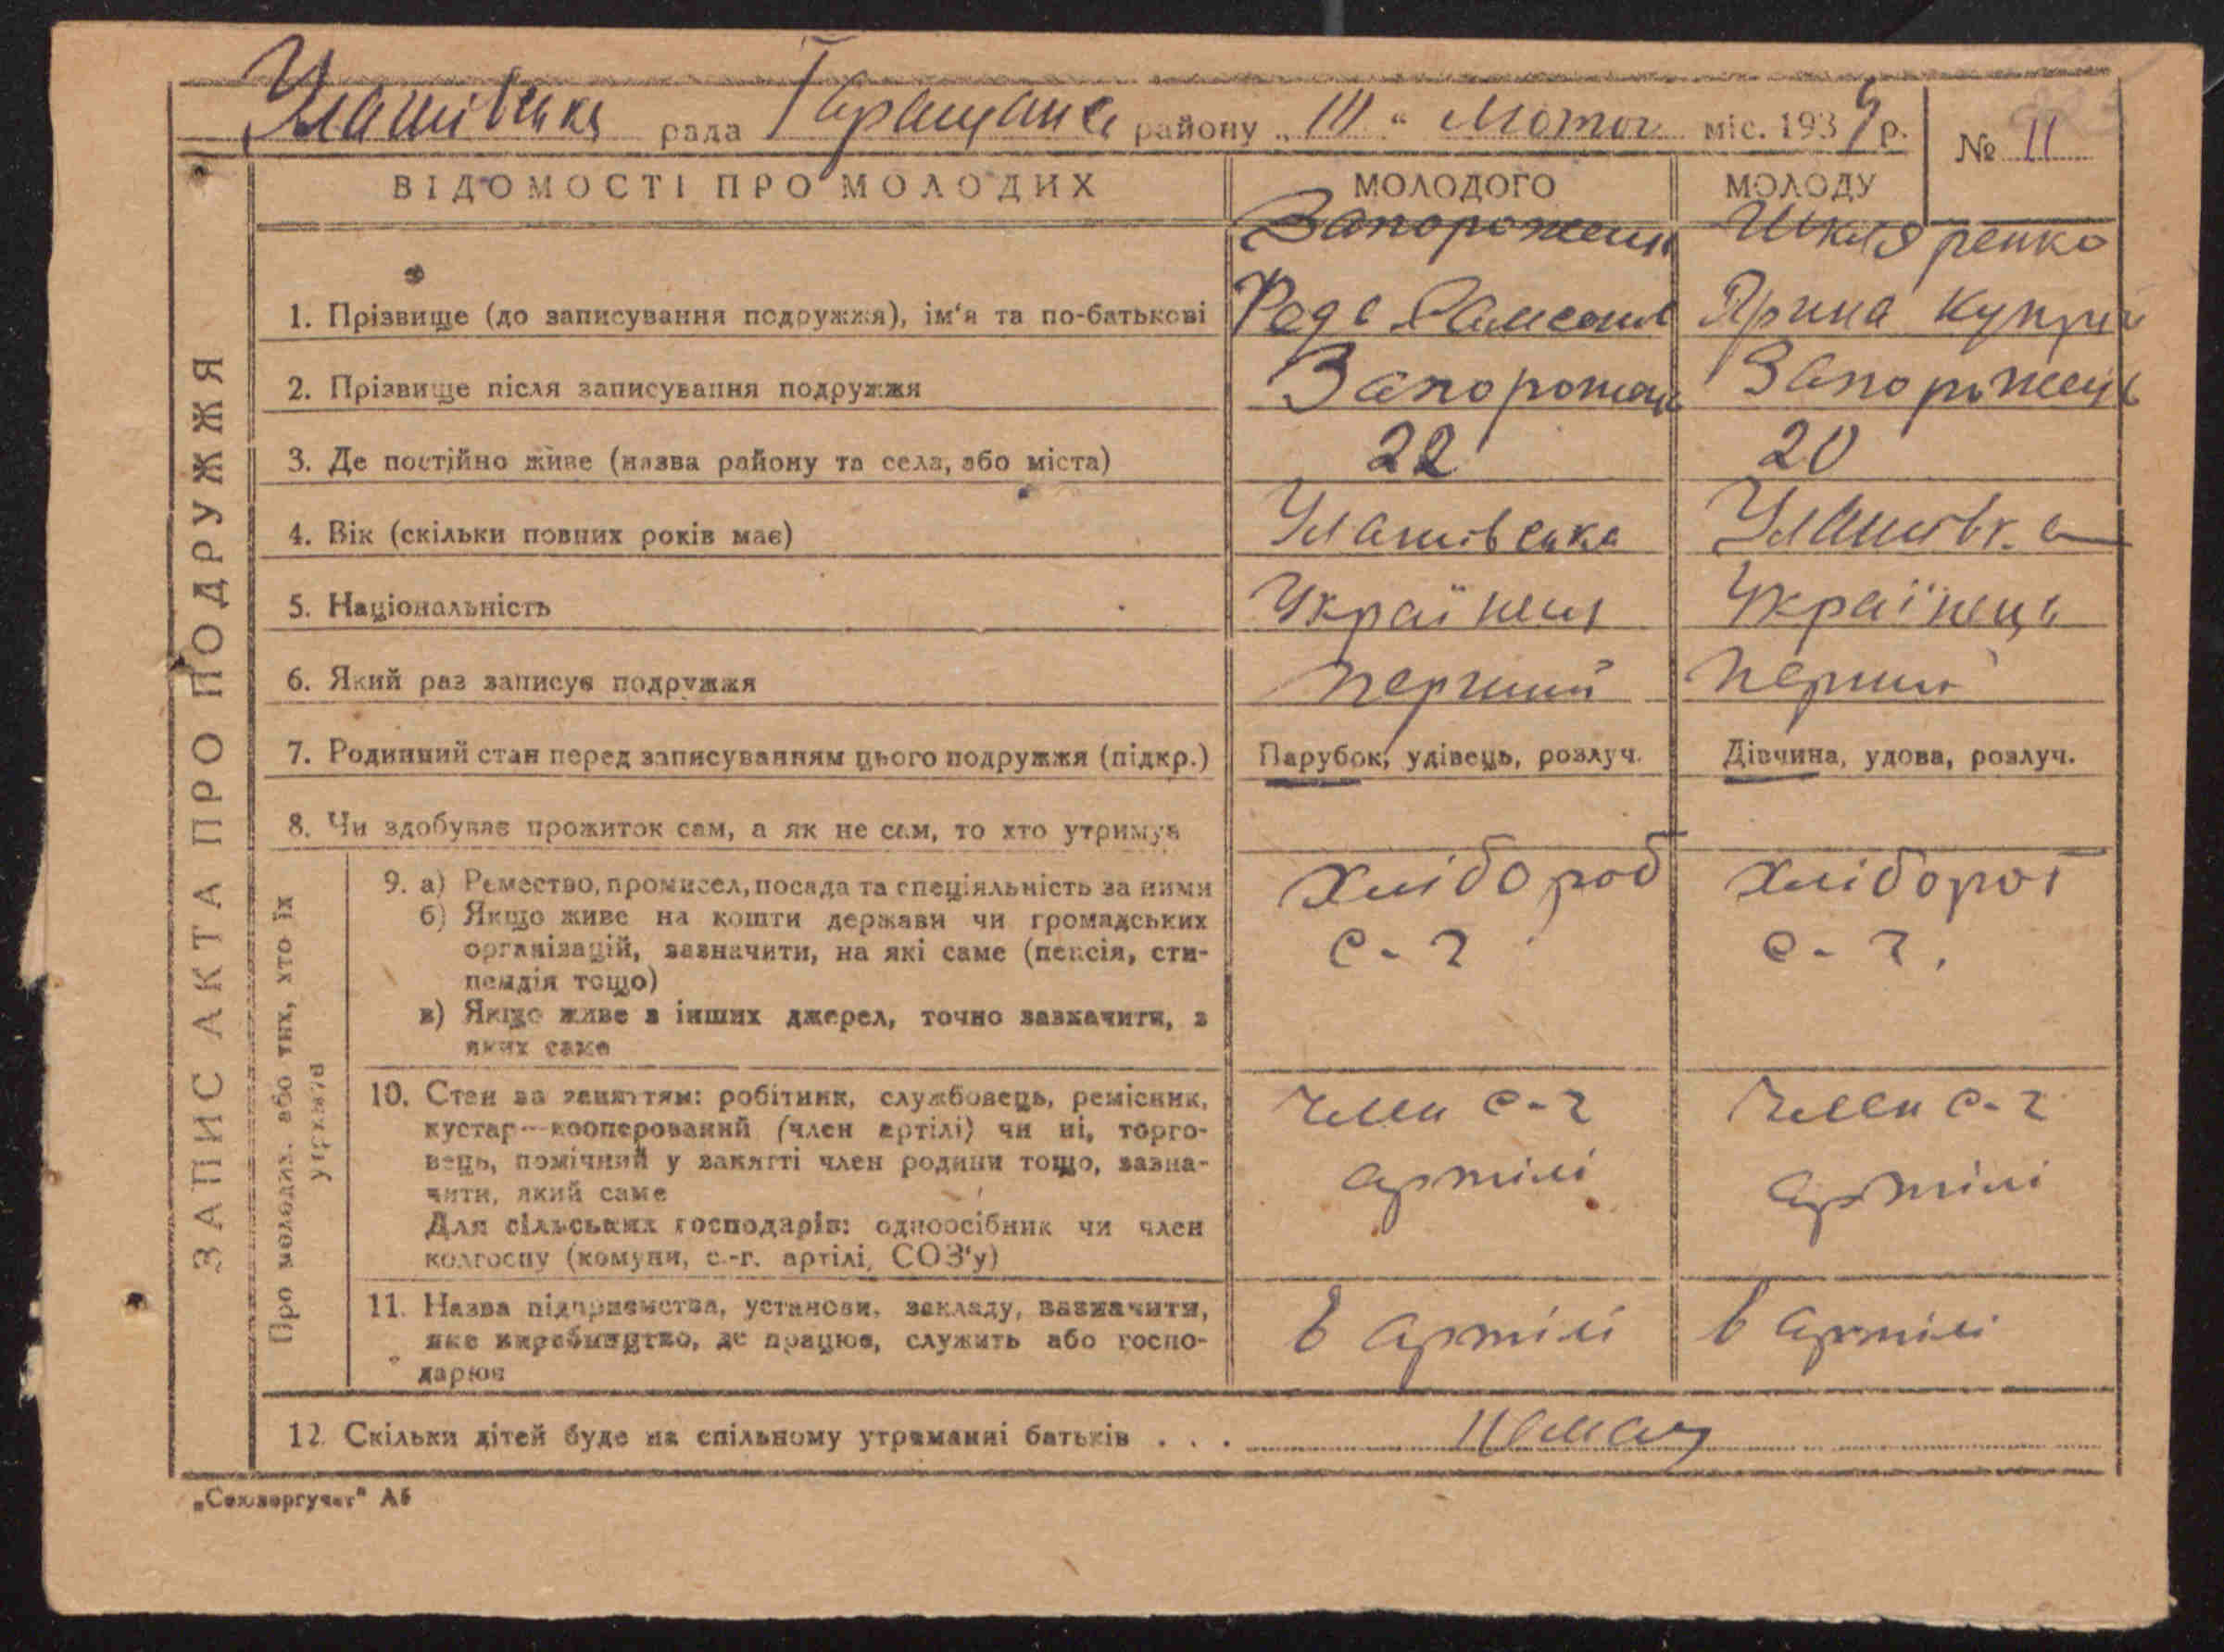 Улашівська рада Таращанс району „ III “ Лютог міс. 1934 р. № 11
ЗАПИС АКТА ПРО ПОДРУЖЖЯ
ВІДОМОСТІ ПРО МОЛОДИХ МОЛОДОГО МОЛОДУ
Запорожець Шкляренко
1. Прізвище (до записування подружжя), ім'я та по-батькові Ярина Купрій
2. Прізвище після записування подружжя Запорожець Запорожець
3. Де постійно живе (назва району та села, або міста) 22 20
4. Вік (скільки повних років має) Улашівська Улашівка
5. Національність Українец Українець
6. Який раз записує подружжя перший перший
7. Родинний стан перед записуванням цього подружжя (підкр.) Парубок, удівець, розлуч. Дівчина, удова, розлуч.
8. Чи здобуває прожиток сам, а як не сам, то хто утримує
Про молодих, або тих, хто їх утримує
9. а) Ремество, промисел, посада та спеціяльність за ними Хлібороб Хлібороб
б) Якщо живе на кошти держави чи громадських с-г с-г.
організацій, зазначити, на які саме (пенсія, сти-
пендія тощо)
в) Якщо живе з інших джерел, точно зазначити, з
яких саме
10. Стан за заняттям: робітник, службовець, ремісник, член с-г член с-г
кустар—кооперований (член артілі) чи ні, торго-
вець, помічний у занятті член родини тощо, зазна- артілі артілі
чити, який саме
Для сільських господарів: одноосібник чи член
колгоспу (комуни, с.-г. артілі, СОЗ'у)
11. Назва підприємства, установи, закладу, зазначити, в артілі в артілі
яке виробництво, де працює, служить або госпо-
дарює
12. Скільки дітей буде на спільному утриманні батьків . . . немає
„Союзоргучет“ А5